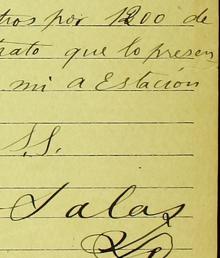 tros por 1200 de
trato que lo presen
mi a Estación
S.S.
Salas